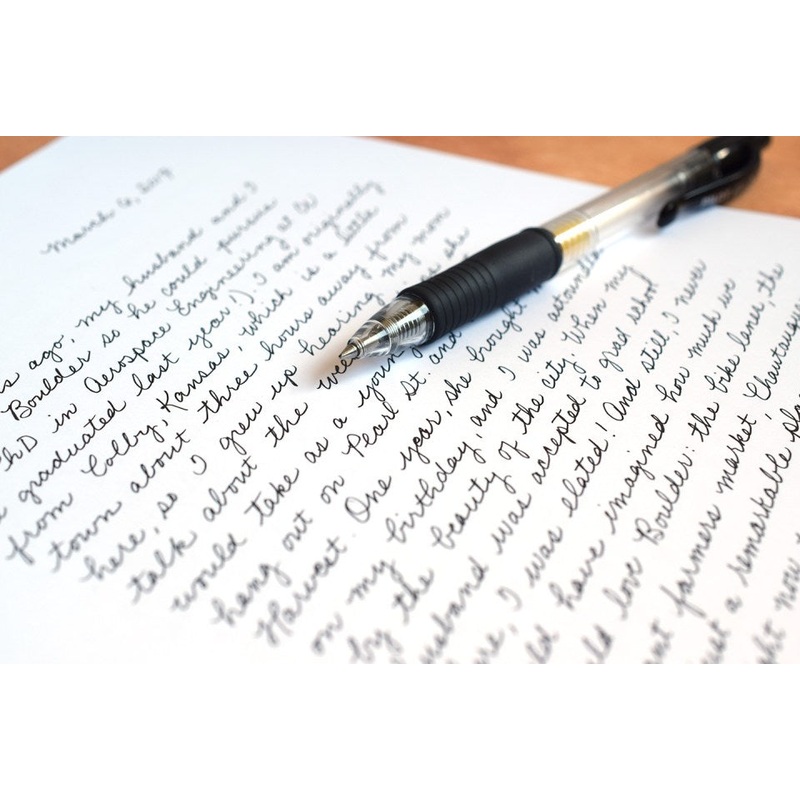 March 6, 2019
s ago, my husband and I
Boulder so he could pursue
PhD in Aerospace Engineering at CU
graduated last year!). I am originally
from Colby, Kansas, which is a little
town about three hours away from
here, so I grew up hearing my mom
talk about the
would take as a young
hang out on Pearl St. and
Harvest. One year, she brought
on my birthday, and I was
by the beauty of the city. When my
husband was accepted to grad school
I was elated! And still, I never
have imagined how much we
love Boulder: the bike lanes, the
farmers market, Chautauqua
a remarkable
now